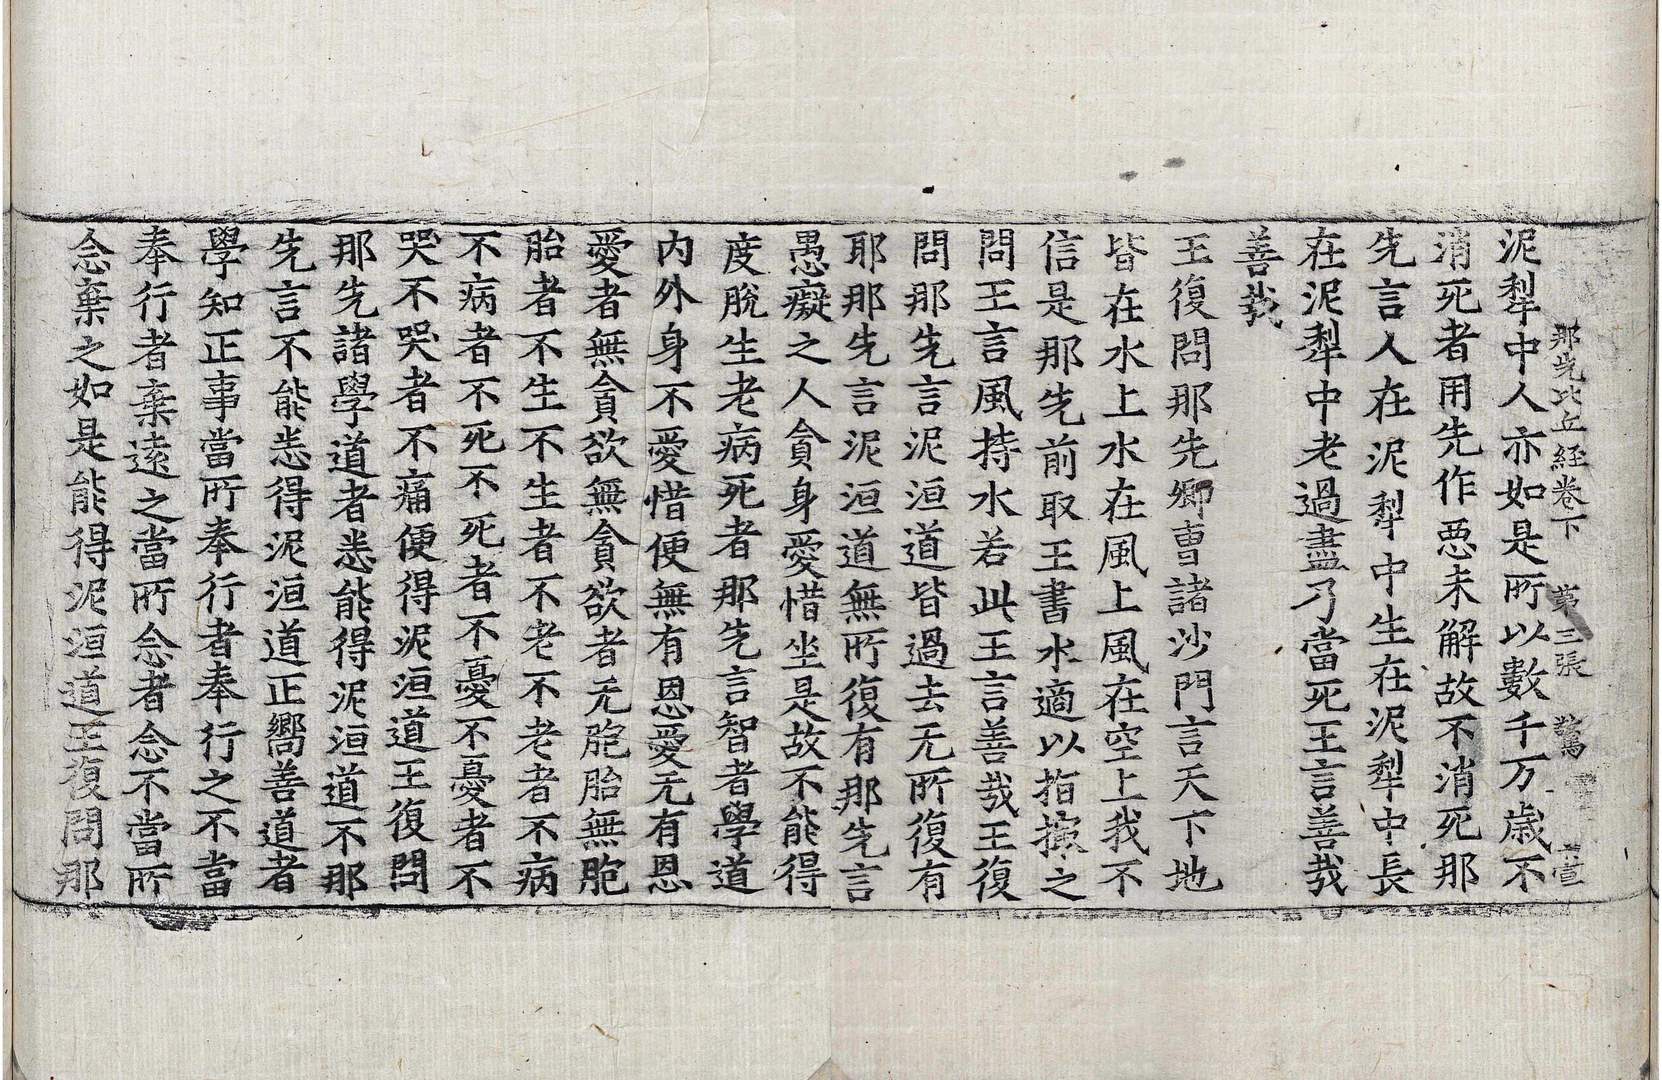 那先比丘経卷下　第三張　驚　壹
泥犁中人亦如是所以數千万歲不
消死者用先作惡未解故不消死那
先言人在泥犁中生在泥犁中長
在泥犁中老過盡乃當死王言善哉
善哉
王復問那先卿曹諸沙門言天下地
皆在水上水在風上風在空上我不
信是那先前取王書水適以指撩之
問王言風持水若此王言善哉王復
問那先言泥洹道皆過去无所復有
耶那先言泥洹道無所復有那先言
愚癡之人貪身愛惜坐是故不能得
度脫生老病死者那先言智者學道
內外身不愛惜便無有恩愛无有恩
愛者無貪欲無貪欲者无胞胎無胞
胎者不生不生者不老不老者不病
不病者不死不死者不憂不憂者不
哭不哭者不痛便得泥洹道王復問
那先諸學道者悉能得泥洹道不那
先言不能悉得泥洹道正嚮善道者
學知正事當所奉行者奉行之不當
奉行者棄遠之當所念者念不當所
念棄之如是能得泥洹道王復問那